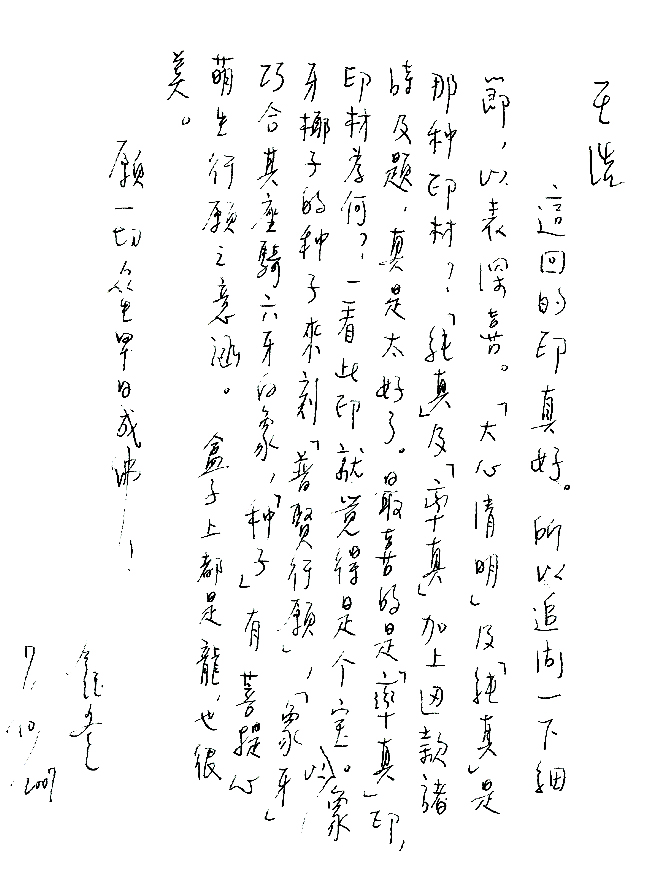 王浩
這回的印真好。所以追問一下細
節，以表深喜。「大心清明」及「純真」是
那种印材？「純真」及「率真」加上边款諸
诗及題，真是太好了。最喜的是「率真」印，
印材為何？一看此印就覚得是个宝。以象
牙椰子的种子來刻「普賢行願」，「象牙」
巧合其座騎六牙白象，「种子」有菩提心
萌生行願之意涵。盒子上都是龍，也很
美。
願一切众生早日成佛！
7/10/2007